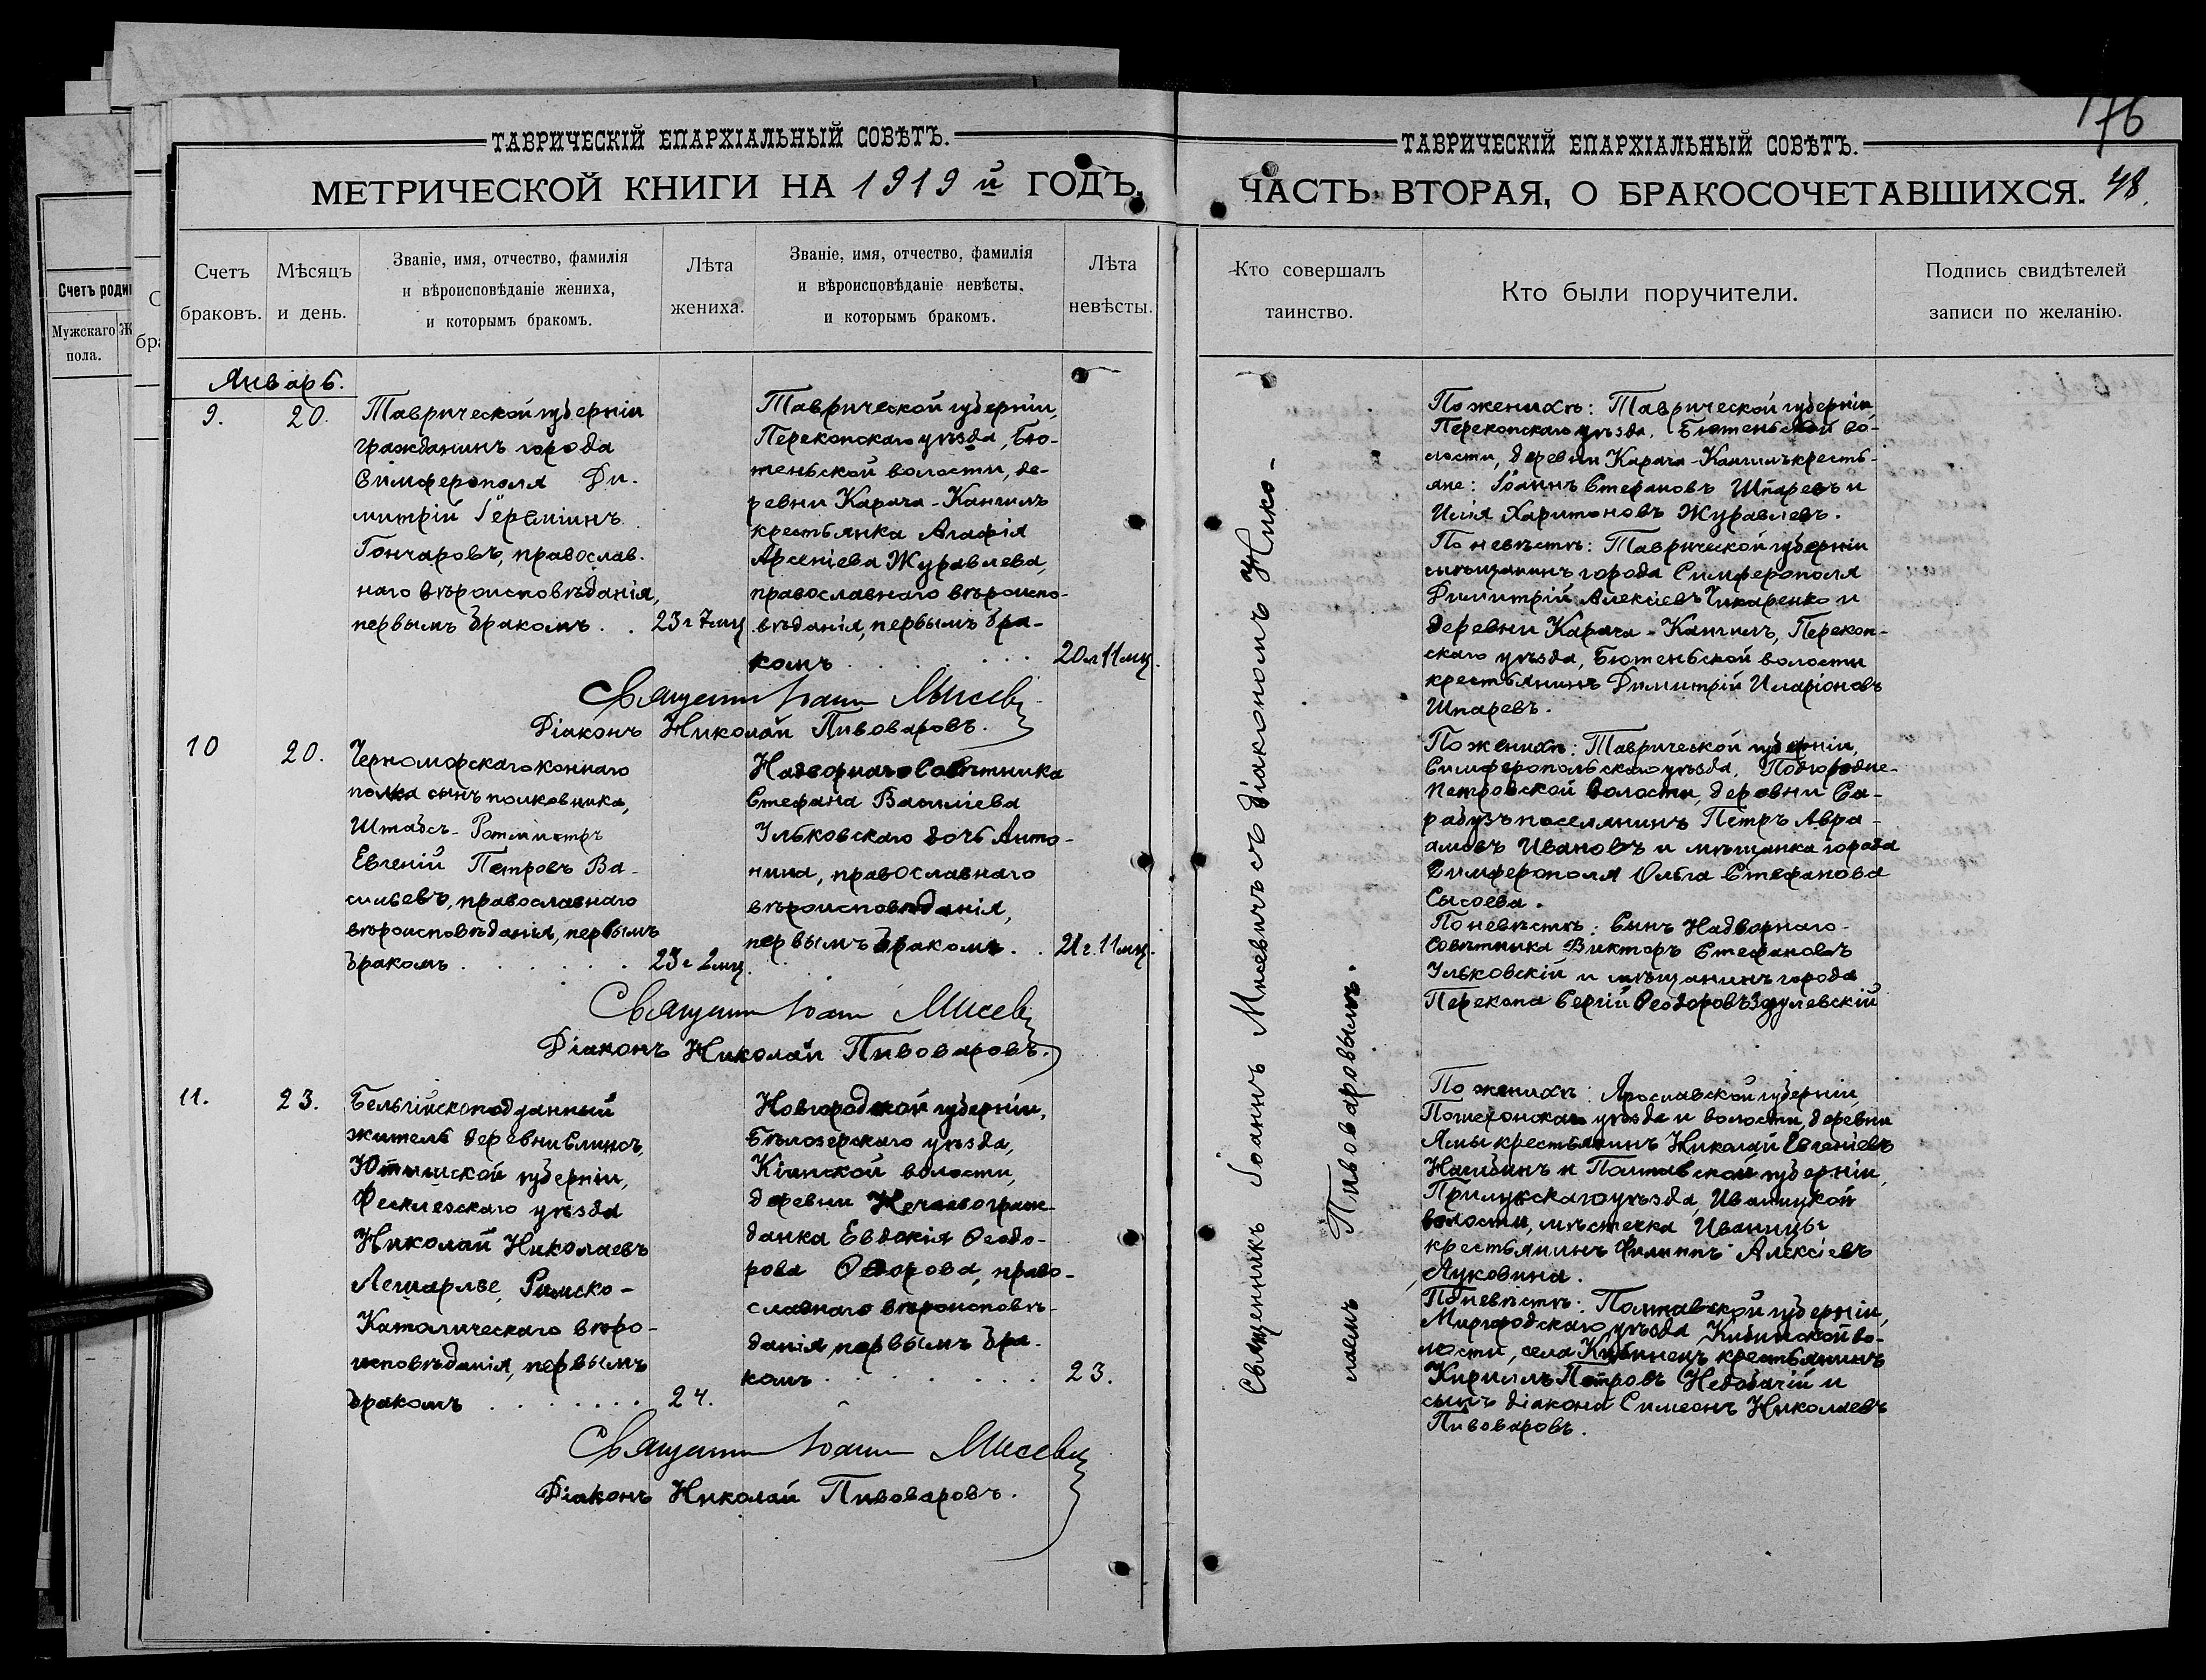 ТАВРИЧЕСКІЙ ЕПАРХІАЛЬНЫЙ СОВѢТЪ.
МЕТРИЧЕСКОЙ КНИГИ НА 1919 й ГОДЪ.
Счетъ браковъ.
Мѣсяцъ и день.
Званіе, имя, отчество, фамилія
и вѣроисповѣданіе жениха,
и которымъ бракомъ.
Лѣта жениха.
Званіе, имя, отчество, фамилія
и вѣроисповѣданіе невѣсты,
и которымъ бракомъ.
Лѣта невѣсты.
Январь.
9.
20.
Таврической губерніи
гражданинъ города
Симферополя Ди-
митрій Іереміинъ
Гончаровъ, православ-
наго вѣроисповѣданія,
первымъ бракомъ . .
23 г 7 мц
Таврической губерніи,
Перекопскаго уѣзда, Бю-
теньской волости, де-
ревни Карача-Кангилъ
крестьянка Агафія
Арсеніева Журавлева,
православнаго вѣроиспо-
вѣданія, первымъ бра-
комъ . . . . .
20 л 11 мц.
Священникъ Іоаннъ Мисевичъ
Діаконъ Николай Пивоваровъ.
10
20.
Черноморскаго коннаго
полка сынъ полковника,
Штабсъ-Ротмистръ
Евгеній Петровъ Ва-
сильевъ, православнаго
вѣроисповѣданія, первымъ
бракомъ . . . . . .
23 г 2 мц.
Надворнаго Совѣтника
Стефана Василіева
Ульковскаго дочь Анто-
нина, православнаго
вѣроисповѣданія,
первымъ бракомъ . .
21 г. 11 мц.
Священникъ Іоаннъ Мисевичъ
Діаконъ Николай Пивоваровъ.
11.
23.
Бельгійскоподданный
житель деревни Слинсъ,
губерніи,
уѣзда
Николай Николаевъ
Римско-
Католическаго вѣро-
исповѣданія, первымъ
бракомъ . . . . . . .
24.
Новгородской губерніи,
Бѣлозерскаго уѣзда,
волости,
деревни граж-
данка Евдокія Ѳеодо-
рова право-
славнаго вѣроисповѣ-
данія, первымъ бра-
комъ . . . . . . .
23.
Священникъ Іоаннъ Мисевичъ
Діаконъ Николай Пивоваровъ.
176
ТАВРИЧЕСКІЙ ЕПАРХІАЛЬНЫЙ СОВѢТЪ.
ЧАСТЬ ВТОРАЯ, О БРАКОСОЧЕТАВШИХСЯ. 48.
Кто совершалъ таинство.
Кто были поручители.
Подпись свидѣтелей
записи по желанію.
Священникъ Іоаннъ Мисевичъ съ діакономъ Нико-
лаемъ Пивоваровымъ.
По женихѣ: Таврической губерніи,
Перекопскаго уѣзда, Бютеньской во-
лости, деревни Карача-Кангилъ кресть-
яне: Іоаннъ Стефановъ Шпаревъ и
Илія Харитоновъ Журавлевъ.
По невѣстѣ: Таврической губерніи
мѣщанинъ города Симферополя
Димитрій Алексіевъ Чикаренко и
деревни Карача-Кангилъ, Перекоп-
скаго уѣзда, Бютеньской волости
крестьянинъ Димитрій Иларіоновъ
Шпаревъ.
По женихѣ: Таврической губерніи,
Симферопольскаго уѣзда, Подгородне-
Петровской волости, деревни Са-
рабузъ поселянинъ Петръ Авра-
амовъ Ивановъ и мѣщанка города
Симферополя Ольга Стефанова
Сысоева.
По невѣстѣ: Сынъ Надворнаго-
Совѣтника Викторъ Стефановъ
Ульковскій и мѣщанинъ города
Перекопа Сергій Ѳеодоровъ
По женихѣ: Ярославской губерніи,
Пошехонскаго уѣзда и волости, деревни
Ямы крестьянинъ Николай Евгеніевъ
и Полтавской губерніи,
Прилукскаго уѣзда, Иваницкой
волости, мѣстечка Иваницы
крестьянинъ Филиппъ Алексіевъ
Луковина.
По невѣстѣ: Полтавской губерніи,
Миргородскаго уѣзда Кибинской во-
лости, села Кибинецъ крестьянинъ
Кириллъ Петровъ Недобачій и
сынъ діакона Симеонъ Николаевъ
Пивоваровъ.
Счетъ роди
Мужскаго пола.